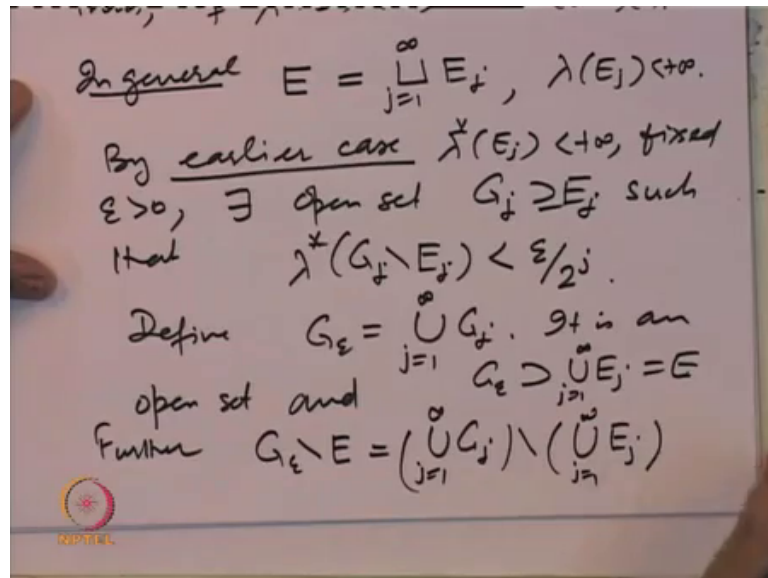 In general E = ⨆_{j=1}^{∞} E_j, λ(E_j) < +∞.
By earlier case λ*(E_j) < +∞, fixed
ε > 0, ∃ open set G_j ⊇ E_j such
that λ*(G_j \ E_j) < ε/2^j.
Define G_ε = ⋃_{j=1}^{∞} G_j. It is an
open set and G_ε ⊃ ⋃_{j=1}^{∞} E_j = E
Further G_ε \ E = (⋃_{j=1}^{∞} G_j) \ (⋃_{j=1}^{∞} E_j)
NPTEL